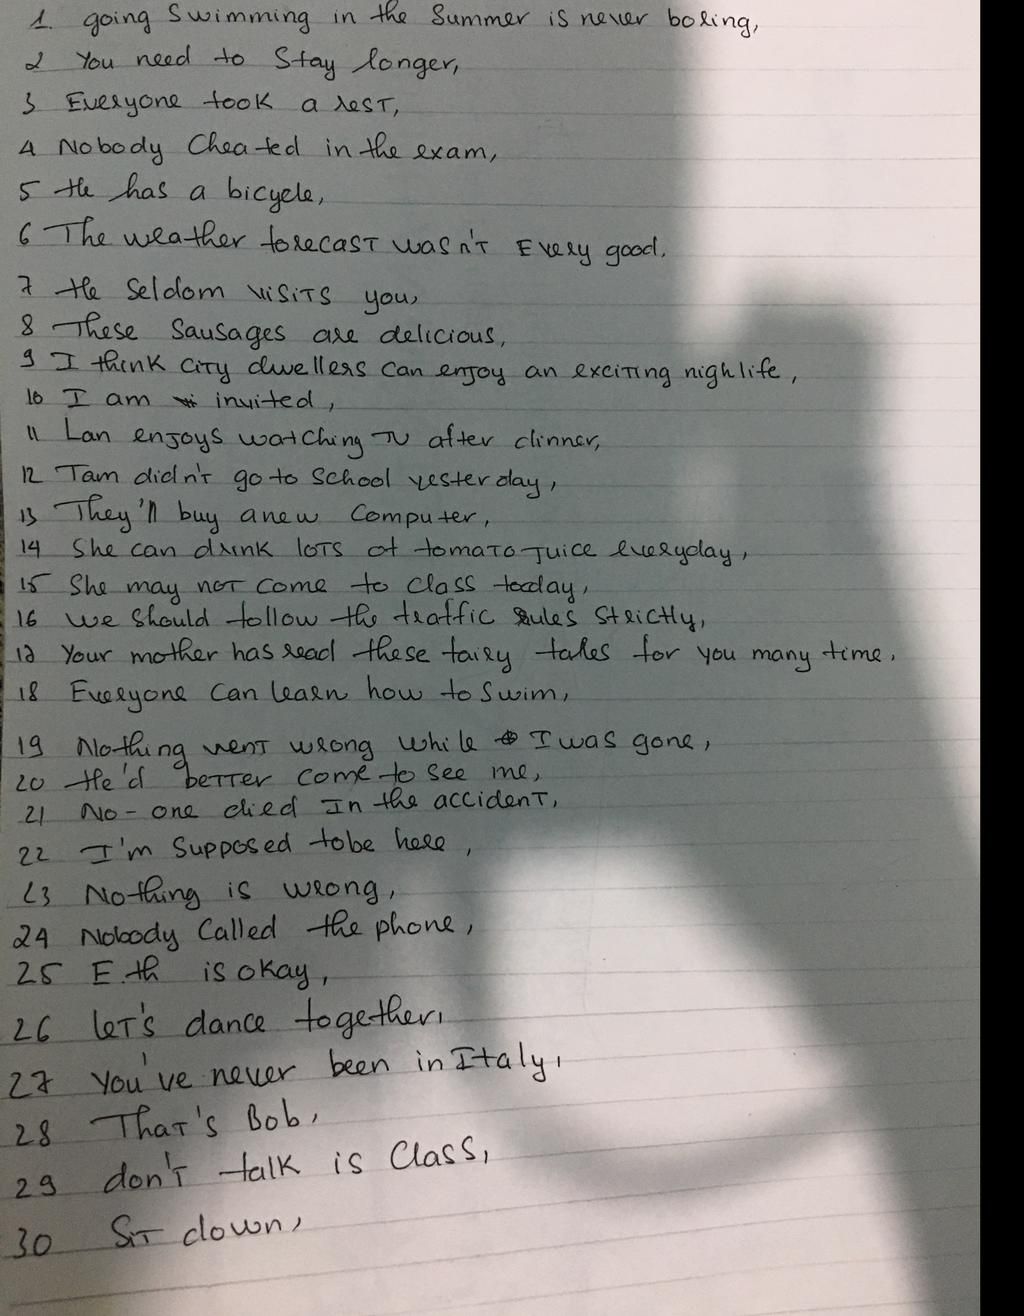 1. going Swimming in the Summer is never boring,
2 You need to Stay longer,
3 Everyone took a rest,
4 Nobody Cheated in the exam,
5 He has a bicycle,
6 The weather forecast wasn't Every good,
7 He Seldom visits you,
8 These Sausages are delicious,
9 I think city dwellers can enjoy an exciting nighlife,
10 I am invited,
11 Lan enjoys watching TV after dinner,
12 Tam didn't go to School yesterday,
13 They'll buy anew Computer,
14 She can drink lots of tomato Juice everyday,
15 She may not come to Class today,
16 we Should follow the traffic rules Strictly,
17 Your mother has read these fairy tales for you many time,
18 Everyone Can learn how to Swim,
19 Nothing went wrong while I was gone,
20 He'd better come to see me,
21 No-one died In the accident,
22 I'm Supposed tobe here,
23 Nothing is wrong,
24 Nobody Called the phone,
25 E.th is okay,
26 let's dance together,
27 You've never been in Italy,
28 That's Bob,
29 don't talk is Class,
30 Sit down,